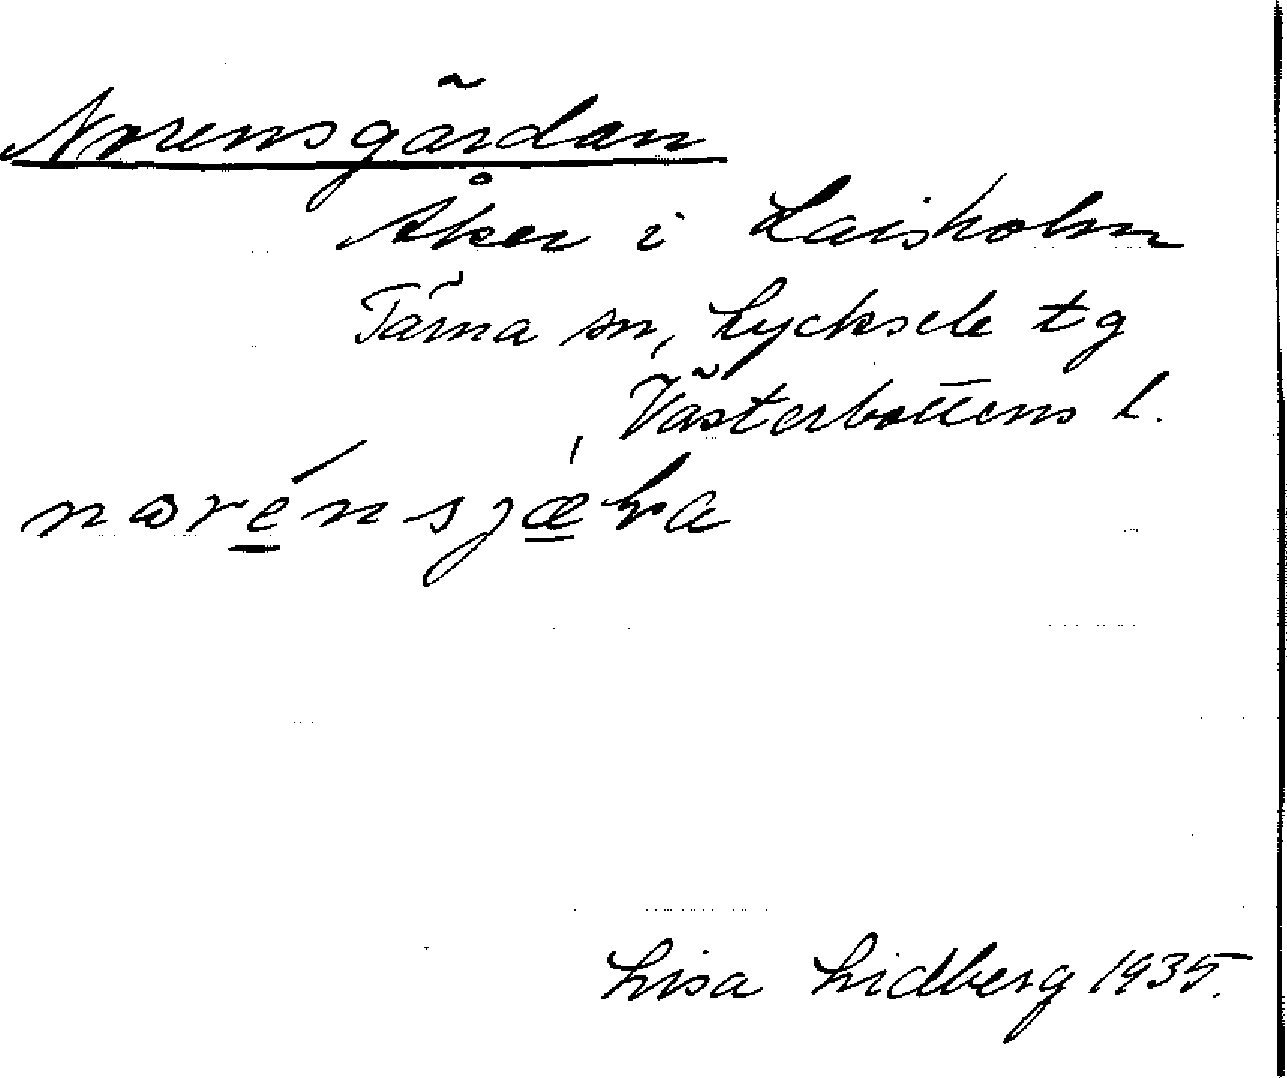 Norensgärdan
Åker i Laisholm
Tärna sn, Lycksele tg
Västerbottens l.
Lisa Lidberg 1935.